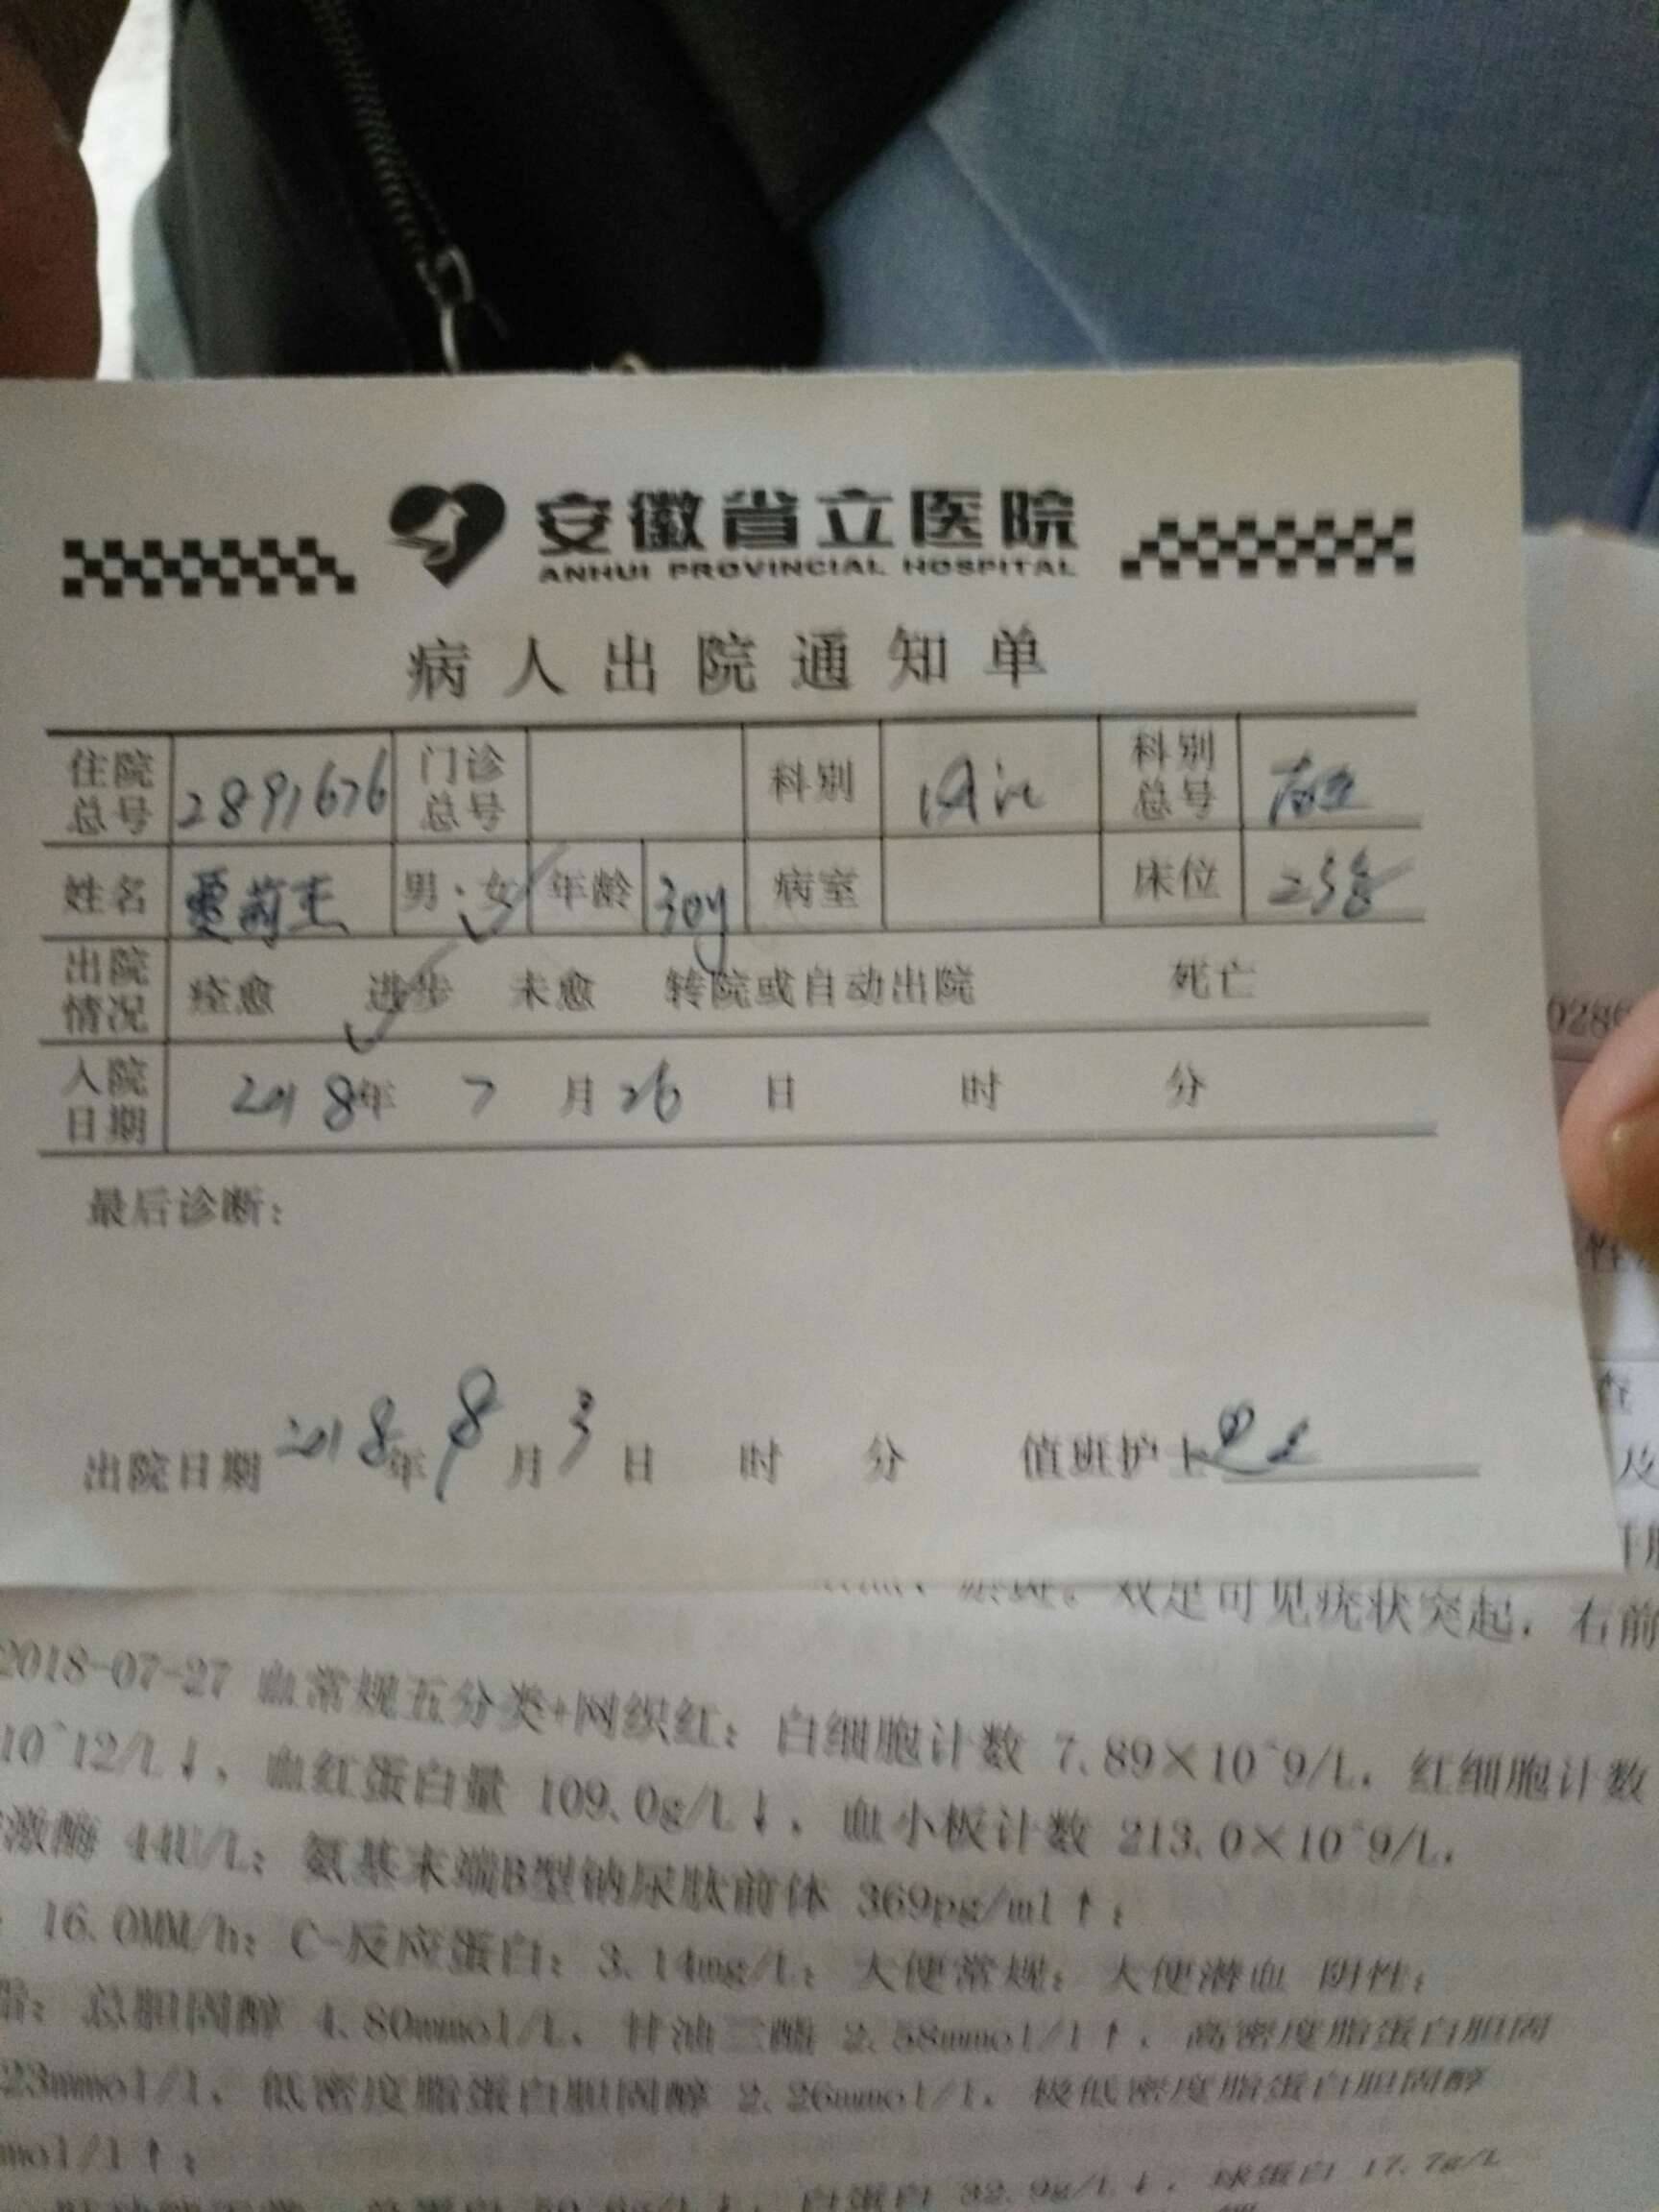 安徽省立医院
ANHUI PROVINCIAL HOSPITAL
病人出院通知单
住院总号 2891676 门诊总号 科别 科别总号
姓名 男·女 年龄 30y 病室 床位 23
出院情况 痊愈 进步 未愈 转院或自动出院 死亡
入院日期 2018年 7月26日 时 分
最后诊断:
出院日期 2018年8月3日 时 分 值班护士
双足可见疣状突起，右前
2018-07-27 血常规五分类+网织红：白细胞计数 7.89×10^9/L，红细胞计数
10^12/L↓，血红蛋白量 109.0g/L↓，血小板计数 213.0×10^9/L，
激酶 44U/L；氨基末端B型钠尿肽前体 369pg/ml↑；
16.0MM/h；C-反应蛋白：3.14mg/L；大便常规：大便潜血 阴性；
脂：总胆固醇 4.80mmol/L，甘油三酯 2.58mmol/l↑，高密度脂蛋白胆固
23mmol/l，低密度脂蛋白胆固醇 2.26mmol/l，极低密度脂蛋白胆固醇
mol/l↑；
白蛋白 32.9g/L↓，球蛋白 17.7g/L